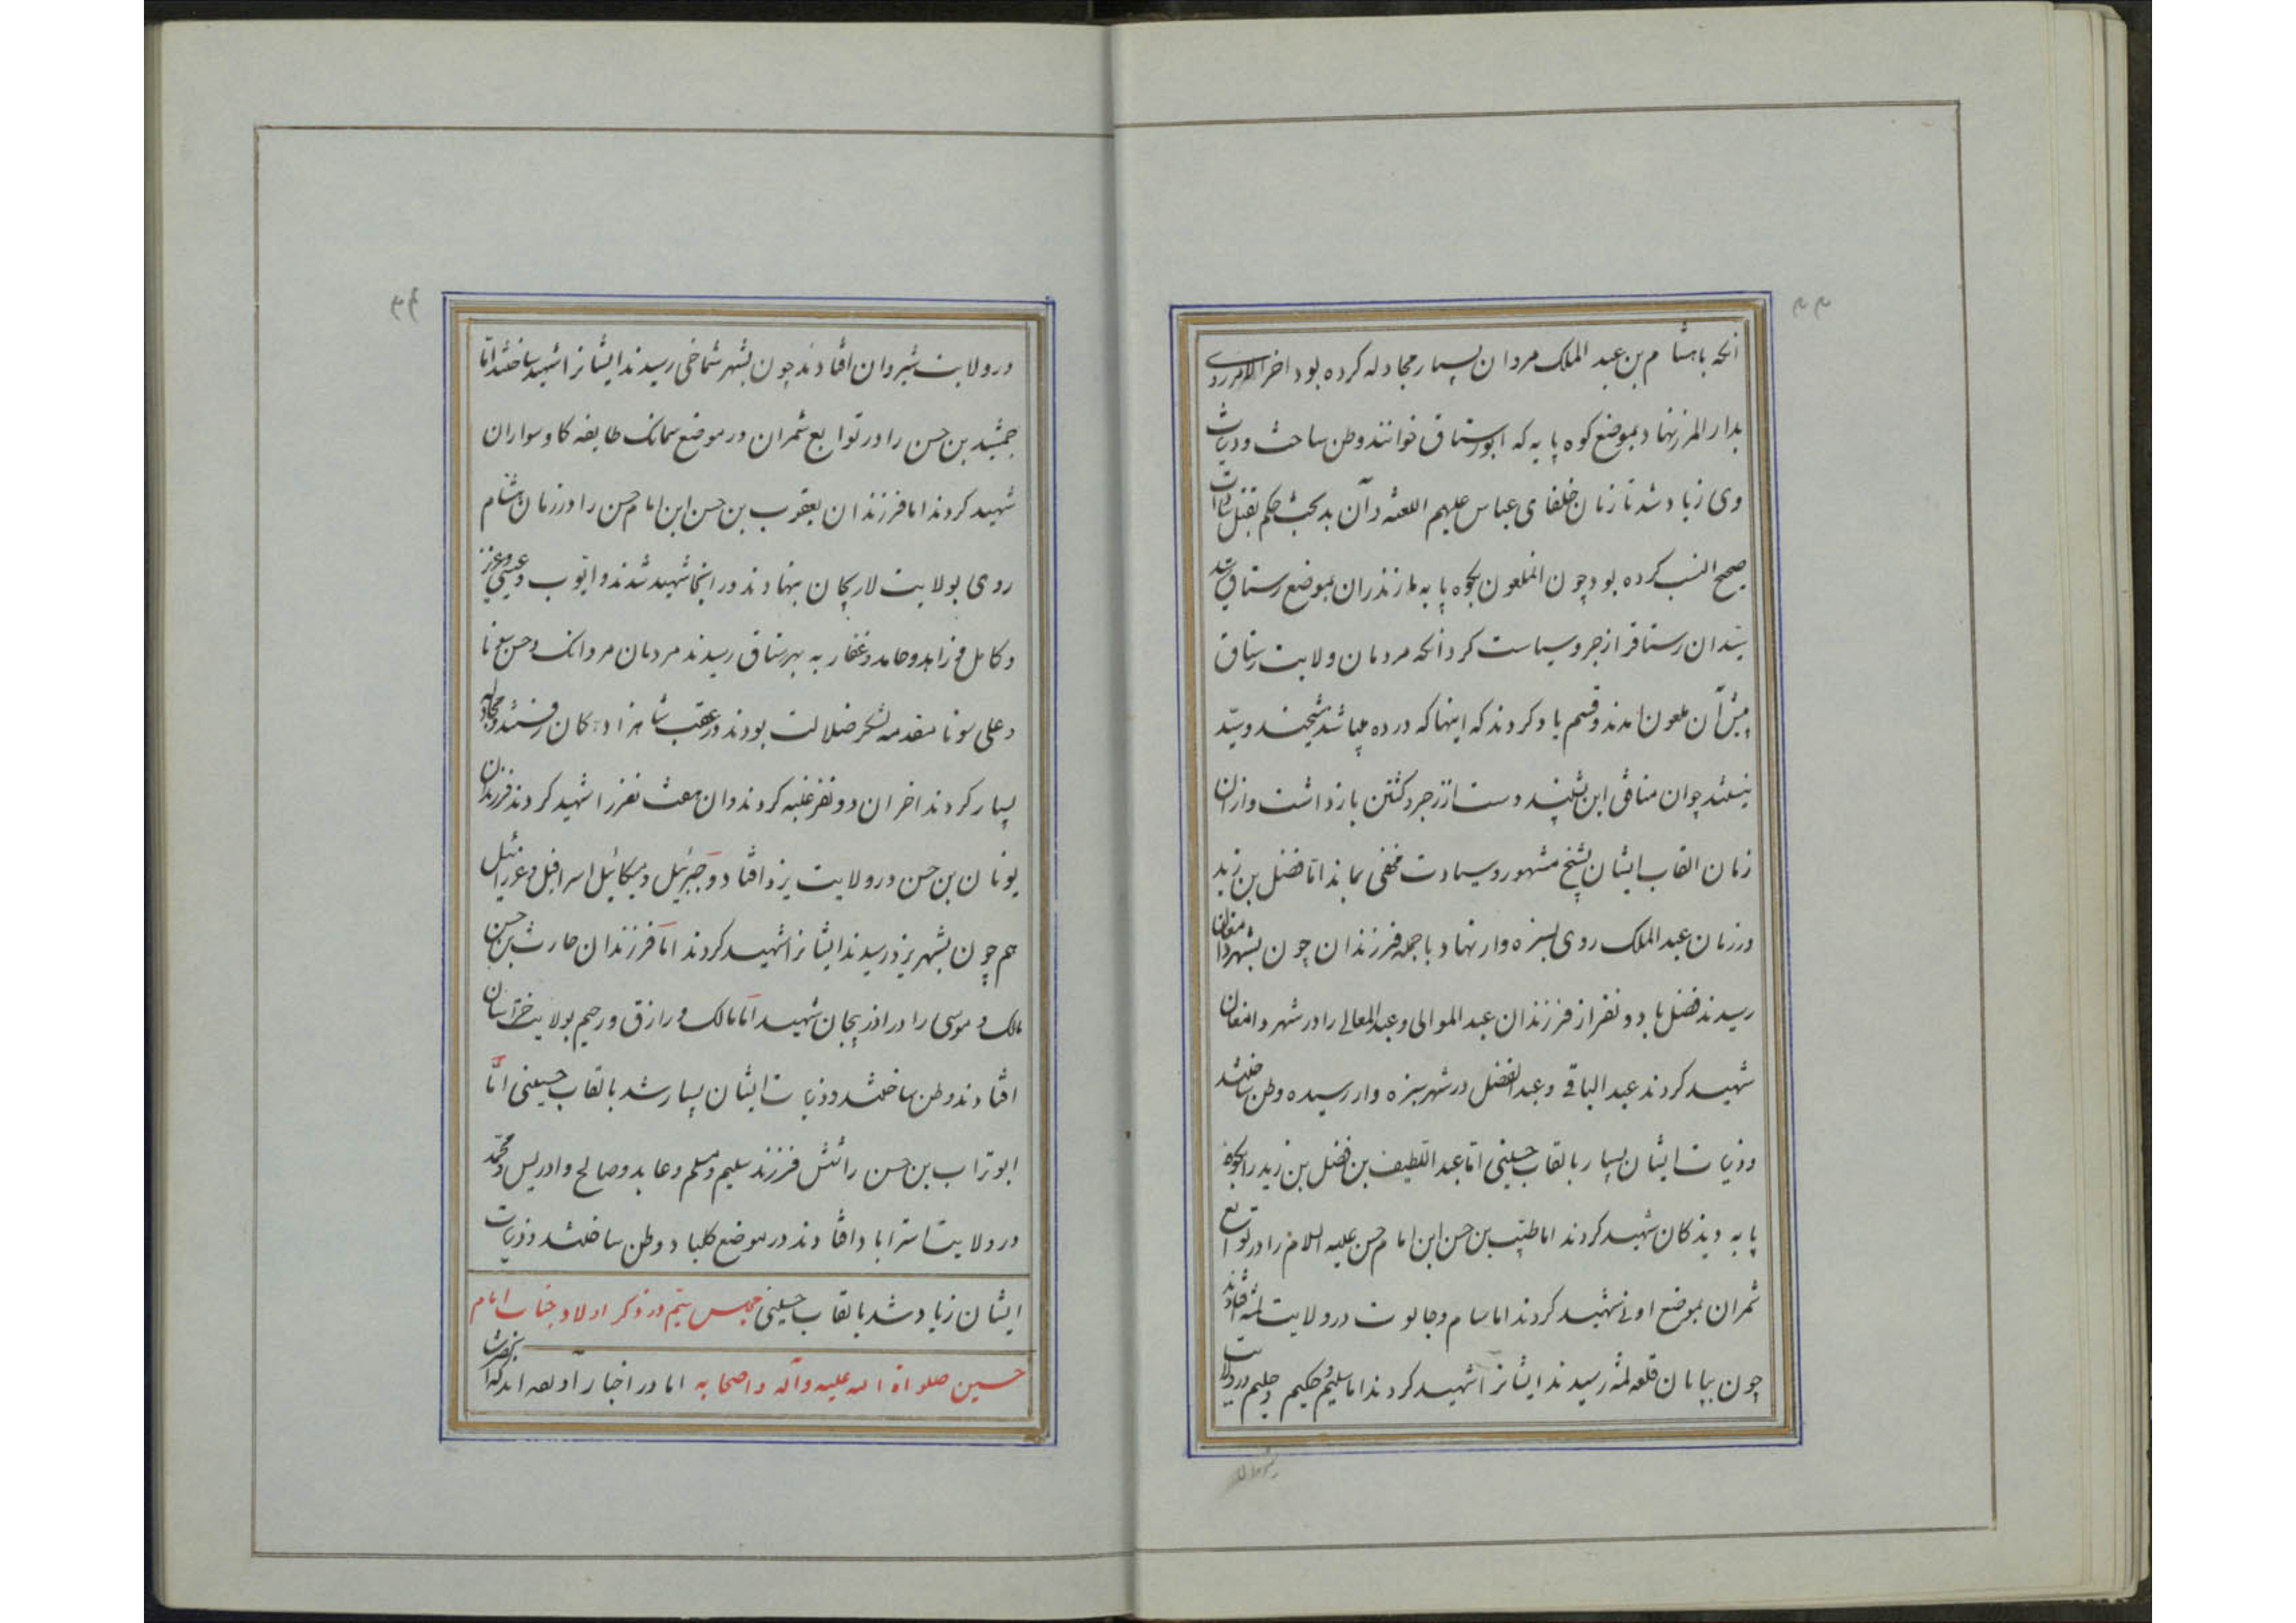 انکه باهشام بن عبد الملک مروان بسیار مجادله کرده بود اخر الامر روی
بدار المرز نهاد بموضع کوه پایه که ابورستاق خوانند وطن ساخت و ذریات
وی زیاد شد تا زمان خلفای عباس علیهم اللعنه و آن بدبخت حکم بقتل سادات
صحیح النسب کرده بود چون انملعون بکوه پایه مازندران بموضع رستاق شد
سیدان رستاق را زجر و سیاست کرد انکه مردمان ولایت رستاق
پیش آن ملعون امدند و قسم یاد کردند که اینها که در ده میباشند شیخند و سید
نیستند چو ان منافق این بشنید دست از زجر و کشتن بازداشت و از ان
زمان القاب ایشان بشیخ مشهور و سیادت مخفی بماند اما فضل بن زید
در زمان عبد الملک روی بسبزه وار نهاد با جمله فرزندان چون بشهر دامغان
رسیدند فضل با دو نفر از فرزندان عبد الموالی و عبد المعالی را در شهر دامغان
شهید کردند عبد الباقی و عبد الفضل در شهر سبزه وار رسیده وطن ساختند
و ذریات ایشان بسیار بالقاب حسینی اما عبد اللطیف بن فضل بن زید را بکوه
پایه دیذکان شهید کردند اما طیب بن حسن ابن امام حسن علیه السلام را در توابع
شمران بموضع اونی شهید کردند اما سام و جالوت در ولایت لمه افتادند
چون بپایان قلعه لمه رسیدند ایشانرا شهید کردند اما سلیم و حکیم و حلیم در ولایت
در ولایت شیروان افتادند چون بشهر شماخی رسیدند ایشانرا شهید ساختند اما
جمشید بن حسن را در توابع شمران در موضع سمانک طایفه کاوسواران
شهید کردند اما فرزندان یعقوب بن حسن ابن امام حسن را در زمان هشام
روی بولایت لاریجان نهادند در اینجا شهید شدند و ایوب و عیسی و عزیز
و کامل و زاهد و حامد و غفار به بهرستاق رسیدند مردمان مردانک و حسن
و علی سونا مقدمه لشکر ضلالت بودند در عقب شاهزاده کان رفتند و مجادله
بسیار کردند اخر ان دو نفر غلبه کردند و ان هفت نفر را شهید کردند فرزندان
یونان بن حسن در ولایت یزد افتاد و جبرئیل و میکائیل اسرافیل و عزرائیل
هم چون بشهر یزد رسیدند ایشانرا شهید کردند اما فرزندان حارث بن حسن
مالک و موسی را در اذربیجان شهید اما مالک و رازق و رحیم بولایت خراسان
افتادند وطن ساختند و ذریات ایشان بسیار شد بالقاب حسینی اما
ابوتراب بن حسن را شش فرزند سلیم و مسلم و عابد و صالح و ادریس و محمد
در ولایت استراباد افتادند در موضع کلباد وطن ساختند و ذریات
ایشان زیاد شد بالقاب حسینی مجلس سیم در ذکر اولاد جناب امام
حسین صلواة الله علیه و آله و اصحابه اما در اخبار آورده اند که انحضرت